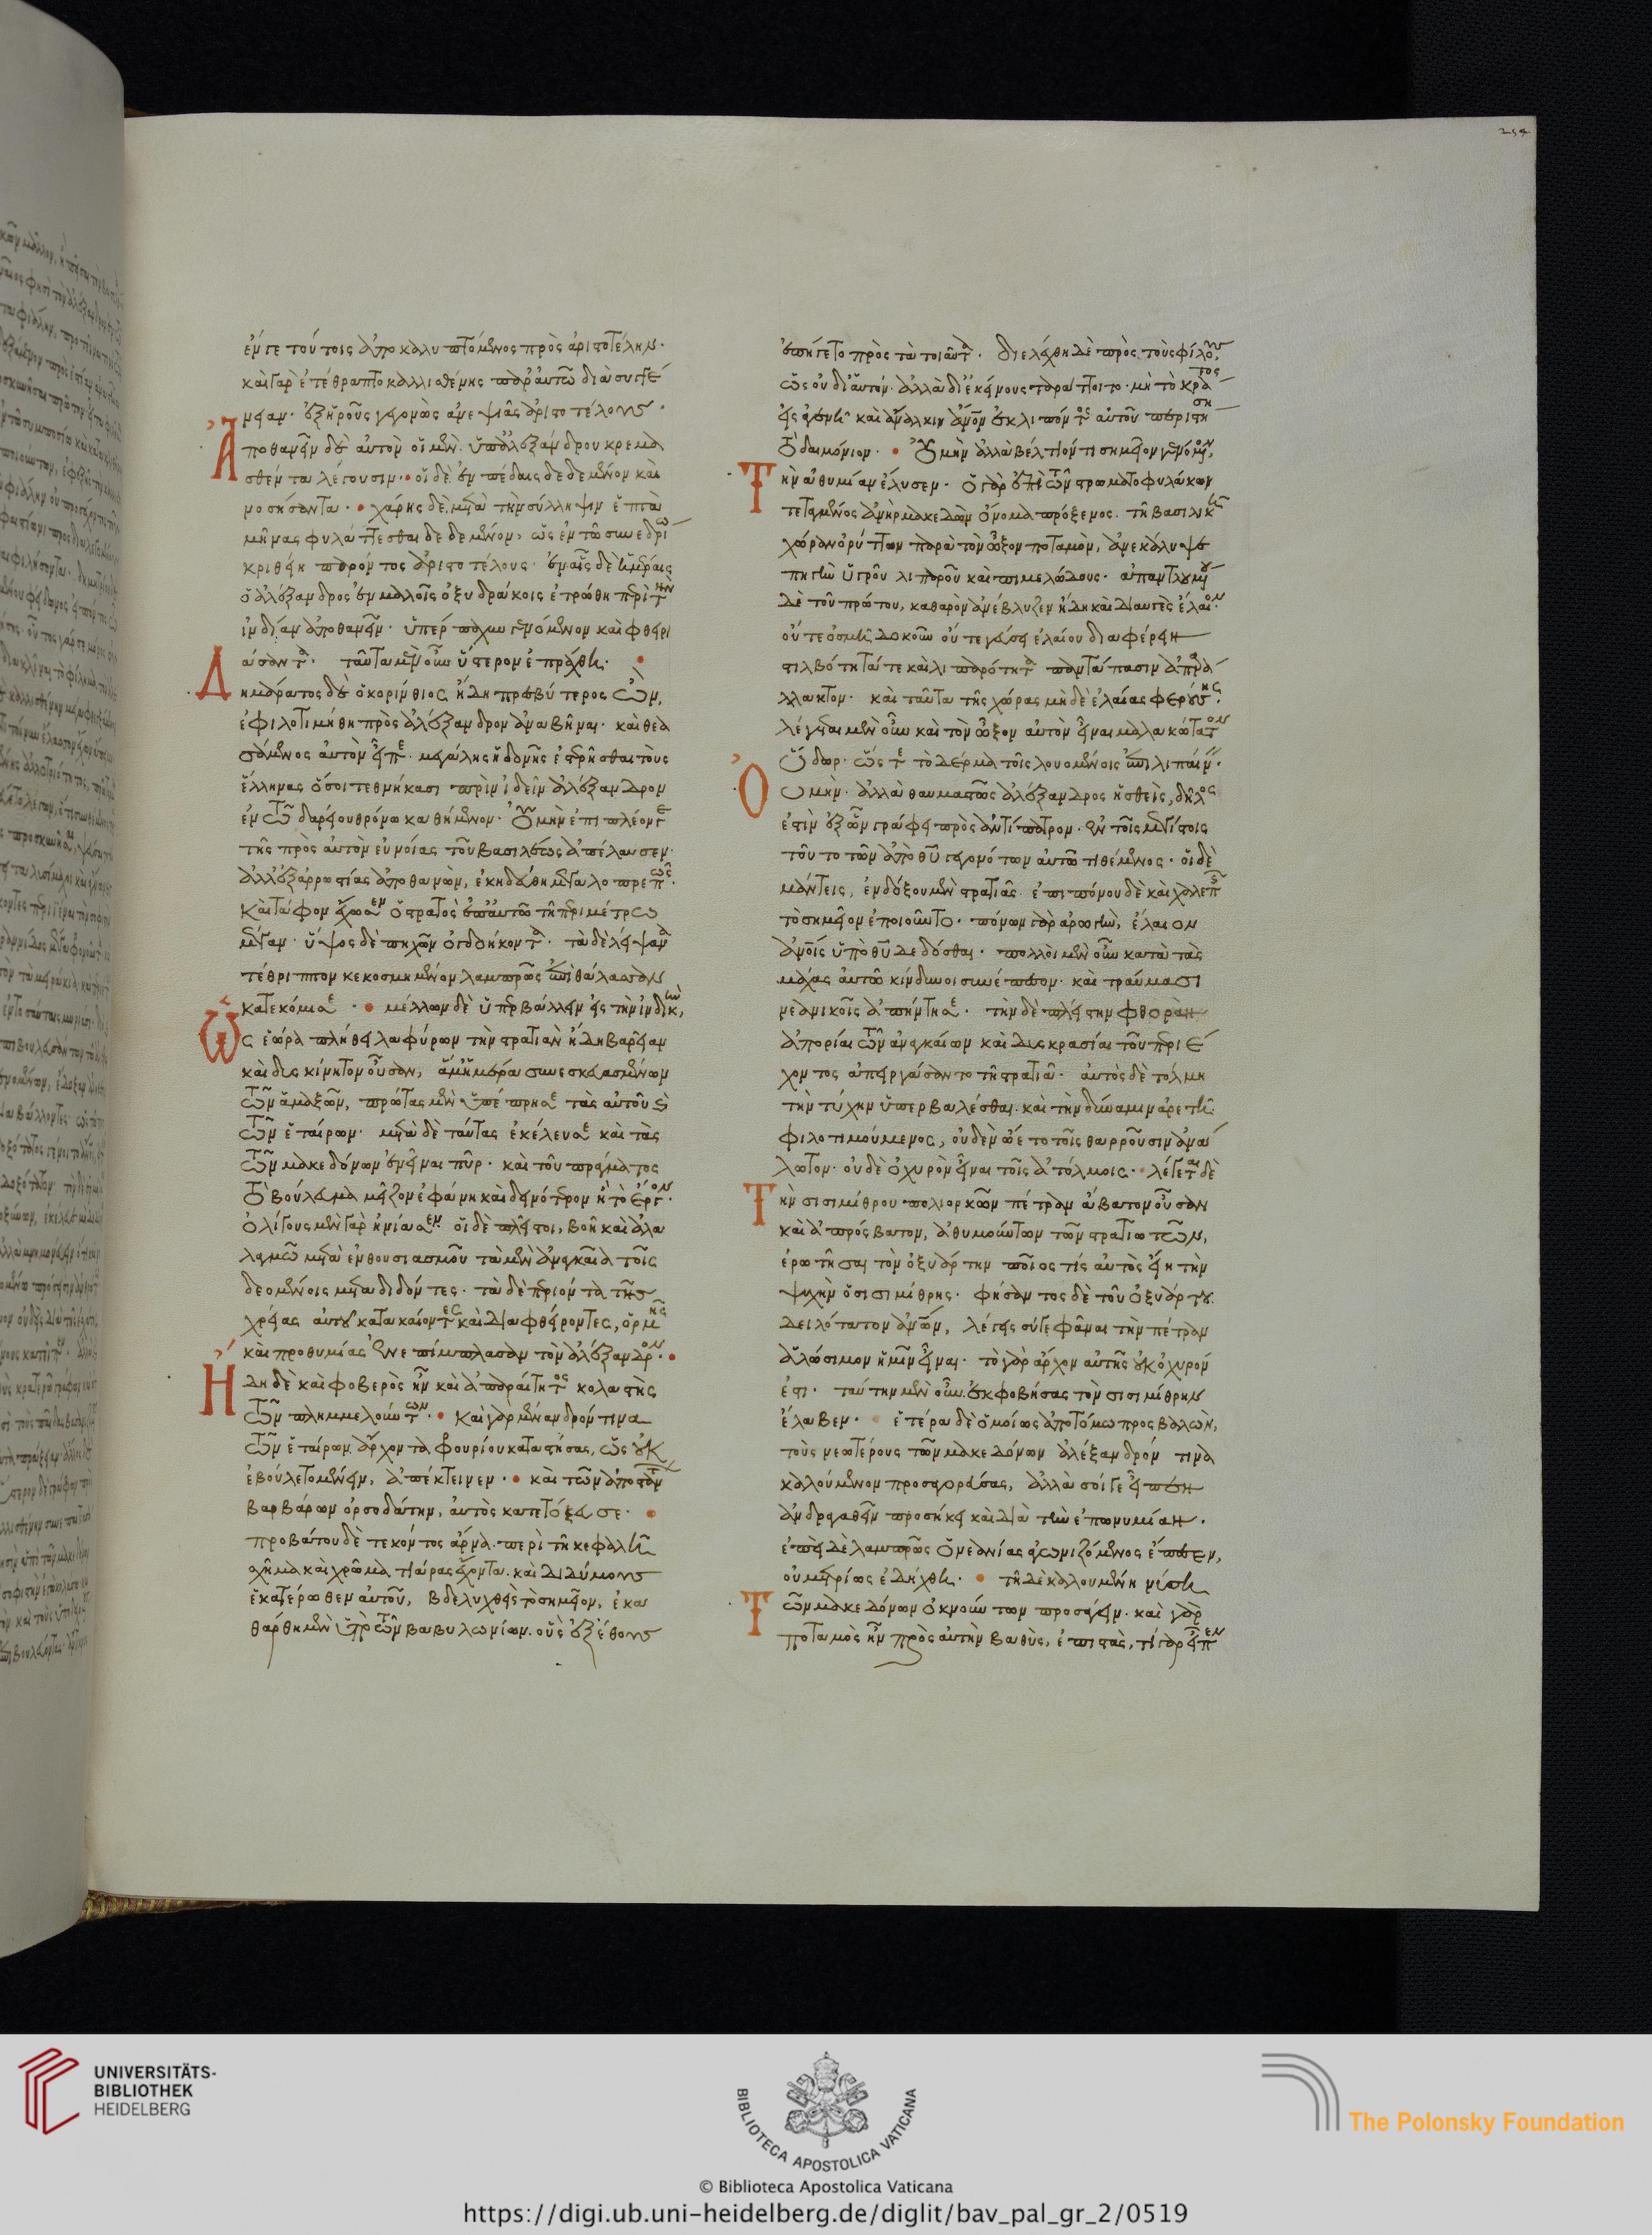 254
ἔν γε τούτοις ἀποκαλυπτόμενος πρὸς ἀριστοτέλην·
καὶ γὰρ ἐτέθραπτο καλλισθένης παρ' αὐτῶ διὰ συγγέ
νειαν· ἐξ ἡροῦς γεγονὼς ἀνεψιᾶς ἀριστοτέλους·
Ἀποθανεῖν δὲ αὐτὸν οἱ μὲν ὑπ' ἀλεξάνδρου κρεμα
σθέντα λέγουσιν· οἱ δὲ ἐν πέδαις δεδεμένον καὶ
νοσήσαντα· χάρης δὲ, μετὰ τὴν σύλληψιν ἑπτὰ
μῆνας φυλάττεσθαι δεδεμένον, ὡς ἐν τῶ συνεδρίω
κριθείη παρόντος ἀριστοτέλους· ἐν αἷς δὲ ἡμέραις
ὁ ἀλέξανδρος ἐν μαλλοῖς ὀξυδράκοις ἐτρώθη περὶ τὴν
ἰνδίαν ἀποθανεῖν· ὑπέρπαχυν γενόμενον καὶ φθειρι
άσαντα· ταῦτα μὲν οὖν ὕστερον ἐπράχθη·
Δημάρατος δὲ ὁ κορίνθιος ἤδη πρεσβύτερος ὢν,
ἐφιλοτιμήθη πρὸς ἀλέξανδρον ἀναβῆναι· καὶ θεα
σάμενος αὐτὸν εἶπε· μεγάλης ἡδονῆς ἐστερῆσθαι τοὺς
ἕλληνας ὅσοι τεθνήκασι πρὶν ἰδεῖν ἀλέξανδρον
ἐν τῶ δαρείου θρόνω καθήμενον· Οὐ μὴν ἐπιπλέον γε
τῆς πρὸς αὐτὸν εὐνοίας τοῦ βασιλέως ἀπέλαυσεν·
ἀλλ' ἐξ ἀρρωστίας ἀποθανὼν, ἐκηδεύθη μεγαλοπρεπῶς·
Καὶ τάφον ἔχωσεν ὁ στρατὸς ἐπ' αὐτῶ τῆ περιμέτρω
μέγαν· ὕψος δὲ πηχῶν ὀγδοήκοντα· τὰ δὲ λείψανα
τέθριππον κεκοσμημένον λαμπρῶς ἐπὶ θάλασσαν
κατεκόμισε· μέλλων δὲ ὑπερβάλλειν εἰς τὴν ἰνδικὴν,
Ὡς ἑώρα πλήθει λαφύρων τὴν στρατιὰν ἤδη βαρεῖαν
καὶ δυσκίνητον οὖσαν, ἅμ' ἡμέρα συνεσκευασμένων
τῶν ἁμαξῶν, πρώτας μὲν ὑπέπρησε τὰς αὐτοῦ καὶ
τῶν ἑταίρων· μετὰ δὲ ταύτας ἐκέλευσε καὶ τὰς
τῶν μακεδόνων ἐνεῖναι πῦρ· καὶ τοῦ πράγματος
τὸ βούλευμα μεῖζον ἐφάνη καὶ δεινότερον ἢ τὸ ἔργον·
ὀλίγους μὲν γὰρ ἠνίασεν· οἱ δὲ πλεῖστοι, βοῆ καὶ ἀλα
λαγμῶ μετὰ ἐνθουσιασμοῦ τὰ μὲν ἀναγκαῖα τοῖς
δεομένοις μεταδιδόντες· τὰ δὲ περιόντα τῆς
χρείας αὐτοὶ κατακαίοντες καὶ διαφθείροντες, ὁρμῆς
καὶ προθυμίας ἐνεπίμπλασαν τὸν ἀλέξανδρον·
Ἤδη δὲ καὶ φοβερὸς ἦν καὶ ἀπαραίτητος κολαστὴς
τῶν πλημμελούντων· Καὶ γὰρ μένανδρόν τινα
τῶν ἑταίρων ἄρχοντα φρουρίου καταστήσας, ὡς οὐκ
ἐβούλετο μένειν, ἀπέκτεινεν· καὶ τῶν ἀποστάντων
βαρβάρων ὀρσοδάτην, αὐτὸς κατετόξευσε·
προβάτου δὲ τεκόντος ἄρνα· περὶ τῆ κεφαλῆ
σχῆμα καὶ χρῶμα τιάρας ἔχοντα· καὶ διδύμους
ἑκατέρωθεν αὐτοῦ, βδελυχθεὶς τὸ σημεῖον, ἐκα
θάρθη μὲν ὑπὸ τῶν βαβυλωνίων· οὓς ἐξ ἔθους
ἐπήγετο πρὸς τὰ τοιαῦτα· διελέχθη δὲ πρὸς τοὺς φίλους,
ὡς οὐ δι' αὑτόν· ἀλλὰ δι' ἐκείνους ταράττοιτο· μὴ τὸ κράτος
εἰς ἀγεννῆ καὶ ἄναλκιν ἄνθρωπον ἐκλιπόντος αὐτοῦ περιστήση
τὸ δαιμόνιον· Οὐ μὴν ἀλλὰ βέλτιόν τι σημεῖον γενόμενον,
Τὴν ἀθυμίαν ἔλυσεν· ὁ γὰρ ἐπὶ τῶν στρωματοφυλάκων
τεταγμένος ἀνὴρ μακεδὼν ὄνομα πρόξενος· τῆ βασιλικῆ
χώραν ὀρύττων παρὰ τὸν ὦξον ποταμὸν, ἀνεκάλυψε
πηγὴν ὑγροῦ λιπαροῦ καὶ πιμελώδους· ἀπαντλουμένου
δὲ τοῦ πρώτου, καθαρὸν ἀνέβλυζεν ἤδη καὶ διαυγὲς ἔλαιον·
οὔτε ὀσμῆ δοκοῦν οὔτε γεύσει ἐλαίου διαφέρειν
στιλβότητά τε καὶ λιπαρότητα παντάπασιν ἀπαρά
λλακτον· καὶ ταῦτα τῆς χώρας μὴ δὲ ἐλαίας φερούσης·
λέγεται μὲν οὖν καὶ τὸν ὦξον αὐτὸν εἶναι μαλακώτατον
ὕδωρ· ὥστε τὸ δέρμα τοῖς λουομένοις ἐπιλιπαίνειν·
Οὐ μὴν ἀλλὰ θαυμαστῶς ἀλέξανδρος ἡσθεὶς, δῆλός
ἐστιν ἐξ ὧν γράφει πρὸς ἀντίπατρον· ἐν τοῖς μεγίστοις
τοῦτο τῶν ἀπὸ θεοῦ γεγονότων αὐτῶ τιθέμενος· οἱ δὲ
μάντεις, ἐνδόξου μὲν στρατιᾶς· ἐπιπόνου δὲ καὶ χαλεπῆς
τὸ σημεῖον ἐποιοῦντο· πόνων γὰρ ἀρωγὴν, ἔλαιον
ἀνθρώποις ὑπὸ θεοῦ δεδόσθαι· πολλοὶ μὲν οὖν κατὰ τὰς
μάχας αὐτῶ κίνδυνοι συνέπεσον· καὶ τραύμασι
νεανικοῖς ἀπήντησε· τὴν δὲ πλείστην φθορὰν
ἀπορίαι τῶν ἀναγκαίων καὶ δυσκρασίαι τοῦ περιέ
χοντος ἀπειργάσαντο τῆ στρατιᾶ· αὐτὸς δὲ τόλμη
τὴν τύχην ὑπερβαλέσθαι· καὶ τὴν δύναμιν ἀρετῆ
φιλοτιμούμενος, οὐδὲν ὤετο τοῖς θαρροῦσιν ἀνά
λωτον· οὐδὲ ὀχυρὸν εἶναι τοῖς ἀτόλμοις· λέγεται δὲ
Τὴν σισιμίθρου πολιορκῶν πέτραν ἄβατον οὖσαν
καὶ ἀπρόσβατον, ἀθυμούντων τῶν στρατιωτῶν,
ἐρωτῆσαι τὸν ὀξυάρτην ποῖός τις αὐτὸς εἴη τὴν
ψυχὴν ὁ σισιμίθρης· φήσαντος δὲ τοῦ ὀξυάρτου
δειλότατον ἀνθρώπων, λέγεις σύ γε φᾶναι τὴν πέτραν
ἁλώσιμον ἡμῖν εἶναι· τὸ γὰρ ἄρχον αὐτῆς οὐκ ὀχυρόν
ἐστι· ταύτην μὲν οὖν ἐκφοβήσας τὸν σισιμίθρην
ἔλαβεν· ἑτέρα δὲ ὁμοίως ἀποτόμω προσβαλὼν,
τοὺς νεωτέρους τῶν μακεδόνων ἀλέξανδρόν τινα
καλούμενον προσαγορεύσας, ἀλλὰ σοί γε εἶπεν
ἀνδραγαθεῖν προσήκει καὶ διὰ τὴν ἐπωνυμίαν·
ἐπεὶ δὲ λαμπρῶς ὁ νεανίας ἀγωνιζόμενος ἔπεσεν,
οὐ μετρίως ἐδήχθη· τῆ δὲ καλουμένη νύση
Τῶν μακεδόνων ὀκνούντων προσάγειν· καὶ γὰρ
ποταμὸς ἦν πρὸς αὐτὴν βαθὺς, ἐπιστὰς, τί γὰρ εἶπεν
UNIVERSITÄTS-
BIBLIOTHEK
HEIDELBERG
BIBLIOTECA APOSTOLICA VATICANA
The Polonsky Foundation
© Biblioteca Apostolica Vaticana
https://digi.ub.uni-heidelberg.de/diglit/bav_pal_gr_2/0519